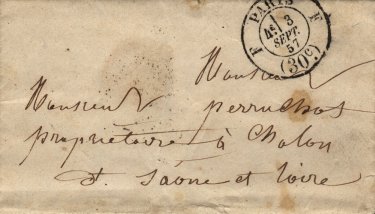 PARIS
F F
3
SEPT.
57
(30c)
Monsieur
Monsieur Perruchot
propriétaire à Chalon
s. Saone et Loire